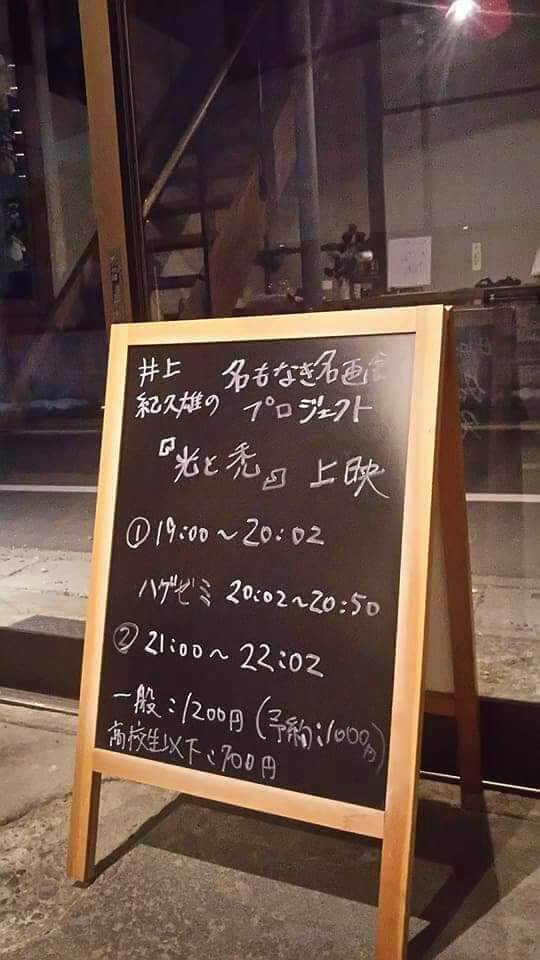 井上 名もなき名画座
紀久雄の プロジェクト
『光と禿』上映
①19:00〜20:02
ハゲゼミ 20:02〜20:50
②21:00〜22:02
一般:1200円(予約:1000円)
高校生以下:700円